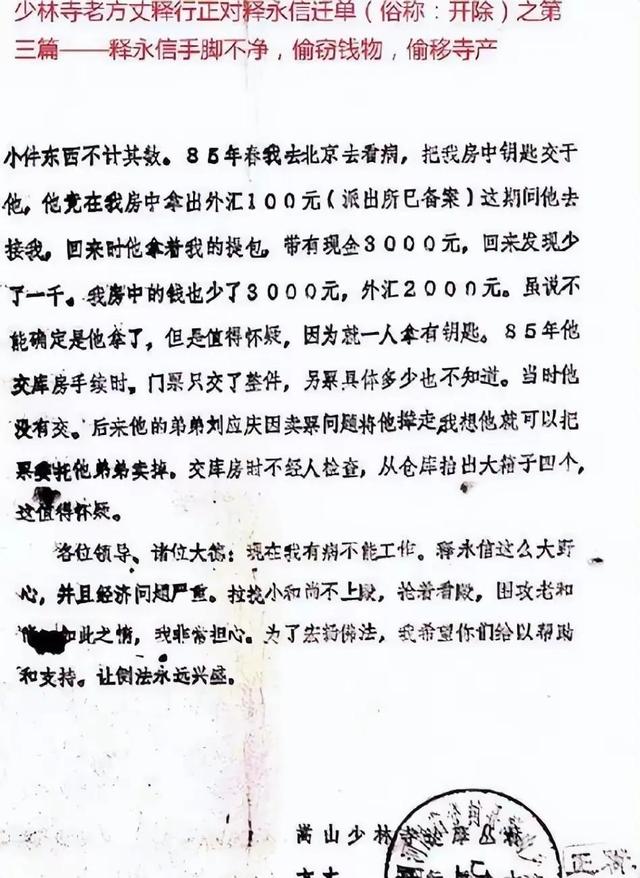 少林寺老方丈释行正对释永信迁单（俗称：开除）之第
三篇——释永信手脚不净，偷窃钱物，偷移寺产
小件东西不计其数。85年春我去北京去看病，把我房中钥匙交于
他，他竟在我房中拿出外汇100元（派出所已备案）这期间他去
接我，回来时他拿着我的提包，带有现金3000元，回来发现少
了一千。我房中的钱也少了3000元，外汇2000元。虽说不
能确定是他拿了，但是值得怀疑，因为就一人拿有钥匙。85年他
交库房手续时。门票只交了整件，另票具体多少也不知道。当时他
没有交。后来他的弟弟刘应庆因卖票问题将他撵走，我想他就可以把
票委托他弟弟卖掉。交库房时不经人检查，从仓库抬出大箱子四个，
这值得怀疑。
各位领导、诸位大德：现在我有病不能工作。释永信这么大野
心，并且经济问题严重。拉拢小和尚不上殿，抢着看殿，围攻老和
如此之情，我非常担心。为了宏扬佛法，我希望你们给以帮助
和支持。让佛法永远兴盛。
嵩山少林寺